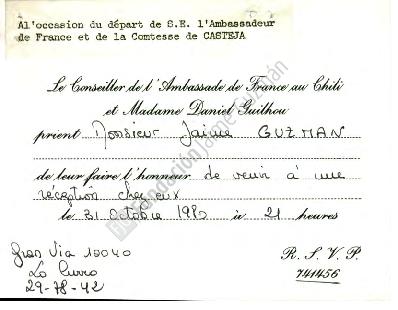 A l'occasion du départ de S.E. l'Ambassadeur
de France et de la Comtesse de CASTEJA
Le Conseiller de l'Ambassade de France au Chili
et Madame Daniel Guilhou
prient Monsieur Jaime GUZMAN
de leur faire l'honneur de venir à une
réception chez eux
le 31 Octobre 1980 à 21 heures
Gran Via 10040
Lo Curro
29-78-42
R. S. V. P.
741456
Fundación Jaime Guzmán